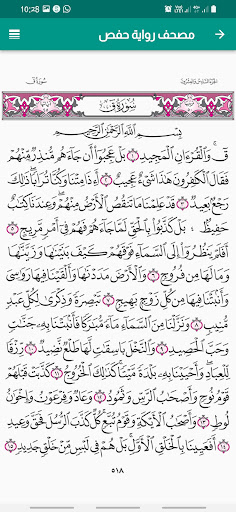 10:28
مصحف رواية حفص
الجزء السادس والعشرون
سورة ق
سُورَةُ قٓ
بِسْمِ ٱللَّهِ ٱلرَّحْمَٰنِ ٱلرَّحِيمِ
قٓ ۚ وَٱلْقُرْءَانِ ٱلْمَجِيدِ ۝١ بَلْ عَجِبُوٓا۟ أَن جَآءَهُم مُّنذِرٌ مِّنْهُمْ
فَقَالَ ٱلْكَٰفِرُونَ هَٰذَا شَىْءٌ عَجِيبٌ ۝٢ أَءِذَا مِتْنَا وَكُنَّا تُرَابًا ۖ ذَٰلِكَ
رَجْعٌۢ بَعِيدٌ ۝٣ قَدْ عَلِمْنَا مَا تَنقُصُ ٱلْأَرْضُ مِنْهُمْ ۖ وَعِندَنَا كِتَٰبٌ
حَفِيظٌۢ ۝٤ بَلْ كَذَّبُوا۟ بِٱلْحَقِّ لَمَّا جَآءَهُمْ فَهُمْ فِىٓ أَمْرٍ مَّرِيجٍ ۝٥
أَفَلَمْ يَنظُرُوٓا۟ إِلَى ٱلسَّمَآءِ فَوْقَهُمْ كَيْفَ بَنَيْنَٰهَا وَزَيَّنَّٰهَا
وَمَا لَهَا مِن فُرُوجٍ ۝٦ وَٱلْأَرْضَ مَدَدْنَٰهَا وَأَلْقَيْنَا فِيهَا رَوَٰسِىَ
وَأَنۢبَتْنَا فِيهَا مِن كُلِّ زَوْجٍۭ بَهِيجٍ ۝٧ تَبْصِرَةً وَذِكْرَىٰ لِكُلِّ عَبْدٍ
مُّنِيبٍ ۝٨ وَنَزَّلْنَا مِنَ ٱلسَّمَآءِ مَآءً مُّبَٰرَكًا فَأَنۢبَتْنَا بِهِۦ جَنَّٰتٍ
وَحَبَّ ٱلْحَصِيدِ ۝٩ وَٱلنَّخْلَ بَاسِقَٰتٍ لَّهَا طَلْعٌ نَّضِيدٌ ۝١٠ رِّزْقًا
لِّلْعِبَادِ ۖ وَأَحْيَيْنَا بِهِۦ بَلْدَةً مَّيْتًا ۚ كَذَٰلِكَ ٱلْخُرُوجُ ۝١١ كَذَّبَتْ قَبْلَهُمْ
قَوْمُ نُوحٍ وَأَصْحَٰبُ ٱلرَّسِّ وَثَمُودُ ۝١٢ وَعَادٌ وَفِرْعَوْنُ وَإِخْوَٰنُ
لُوطٍ ۝١٣ وَأَصْحَٰبُ ٱلْأَيْكَةِ وَقَوْمُ تُبَّعٍ ۚ كُلٌّ كَذَّبَ ٱلرُّسُلَ فَحَقَّ وَعِيدِ
۝١٤ أَفَعَيِينَا بِٱلْخَلْقِ ٱلْأَوَّلِ ۚ بَلْ هُمْ فِى لَبْسٍ مِّنْ خَلْقٍ جَدِيدٍ ۝١٥
٥١٨